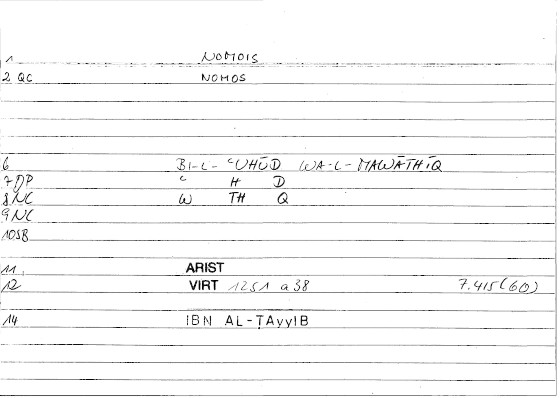 1 NOMOIS
2 QC NOMOS
6 BI-L-ʿUHŪD WA-L-MAWĀTHĪQ
7 DP ʿ H D
8 NC W TH Q
9 NC
10 SB
11 ARIST
12 VIRT 1251 a 38 7.415(60)
14 IBN AL-ṬAyyIB